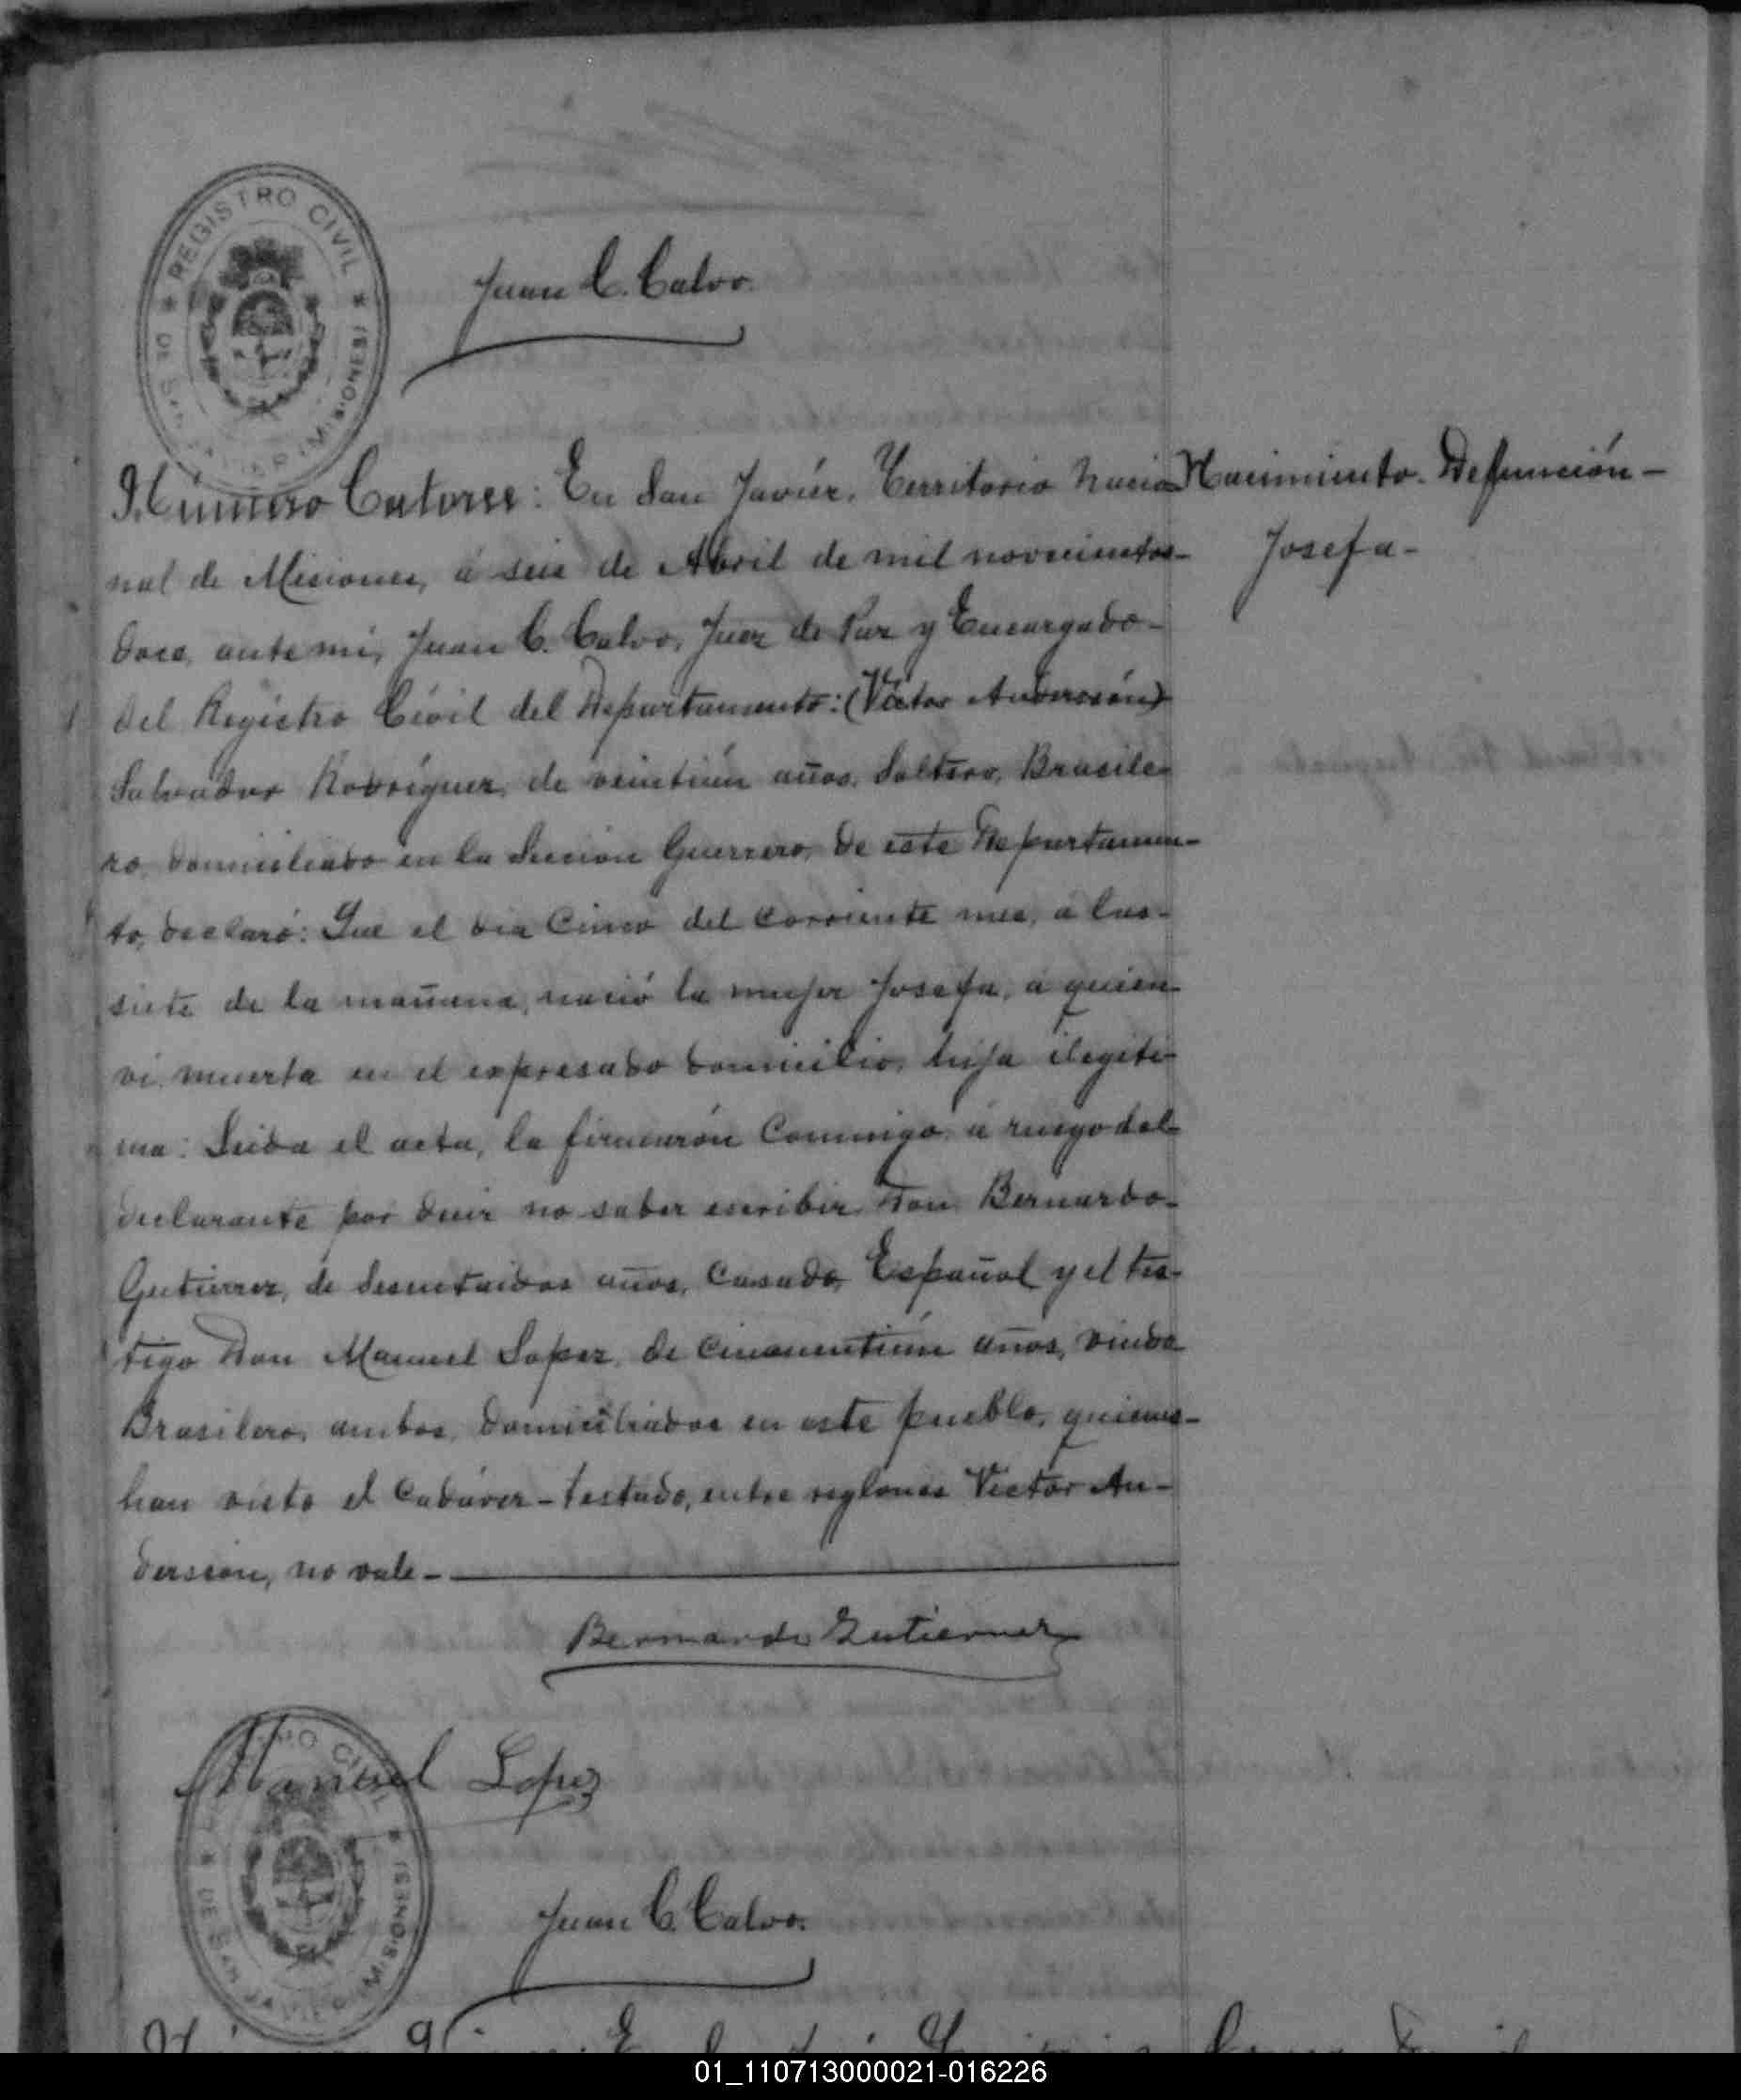 REGISTRO CIVIL
DE SAN JAVIER (MISIONES)
Juan C. Calvo.
Número Catorce: En San Javiér, Territorio Nacio
Nacimiento. Defunción-
Josefa-
nal de Misiones, á seis de Abril de mil novecientos-
doce, ante mi, Juan C. Calvo, Juez de Paz y Encargado-
del Registro Civil del Departamento: (Victor Anderesón)
Salvador Rodríguez, de veintiún años, Soltero, Brasile-
ro, domiciliado en la Sección Guerrero, de este Departamen-
to, declaró: Que el dia Cinco del corriente mes, á las-
siete de la mañana, nació la mujer Josefa, á quien-
vi muerta en el expresado domicilio, hija ilegiti-
ma: Leida el acta, la firmarón Conmigo á ruego del-
declarante por decir no saber escribir Don Bernardo-
Gutierrez, de Sesentaidos años, Casado, Español y el tes-
tigo Don Manuel Lopez, de cincuentiún años, viudo
Brasilero, ambos domiciliados en este pueblo, quienes-
han visto el Cadáver-testado, entre reglones Victor An-
dersión, no vale-
Bernardo Gutierrez
Manuel Lopez
REGISTRO CIVIL
DE SAN JAVIER (MISIONES)
Juan C. Calvo.
01_110713000021-016226